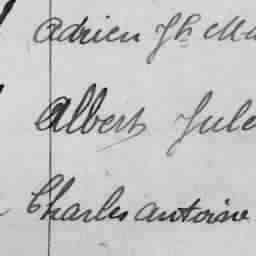 Adrien Jh Ma
Albert Jule
Charles Antoine